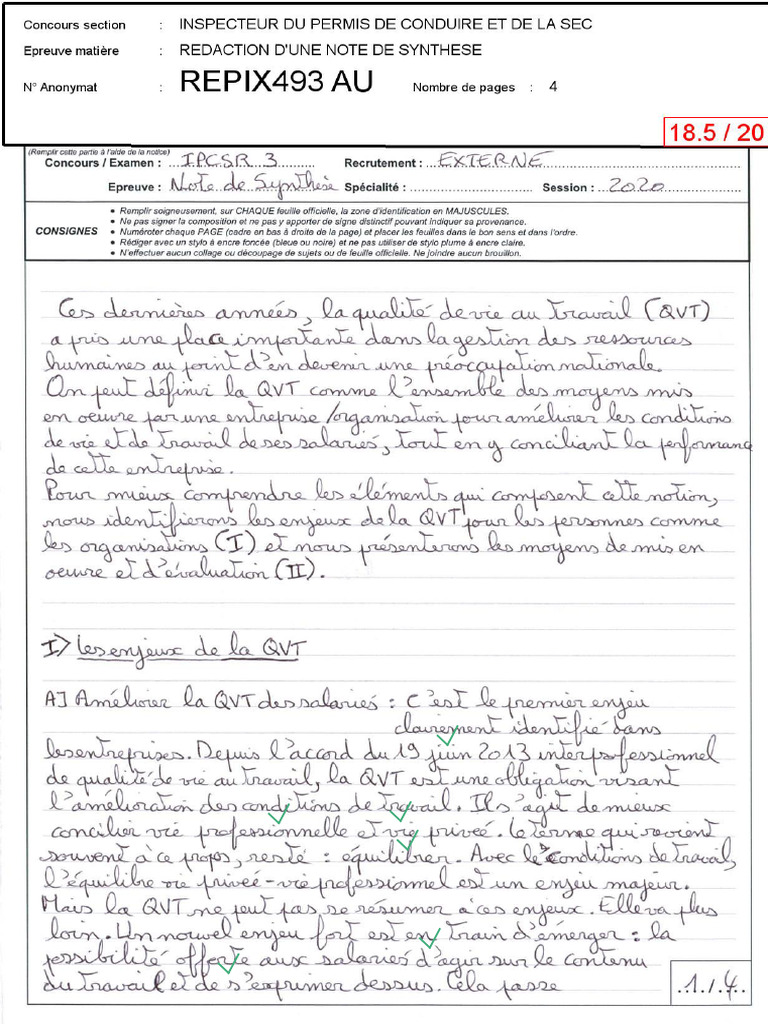 Concours section : INSPECTEUR DU PERMIS DE CONDUIRE ET DE LA SEC
Epreuve matière : REDACTION D'UNE NOTE DE SYNTHESE
N° Anonymat : REPIX493 AU Nombre de pages : 4
18.5 / 20
(Remplir cette partie à l'aide de la notice)
Concours / Examen : IPCSR 3 Recrutement : EXTERNE
Epreuve : Note de Synthèse Spécialité : Session : 2020
CONSIGNES
• Remplir soigneusement, sur CHAQUE feuille officielle, la zone d'identification en MAJUSCULES.
• Ne pas signer la composition et ne pas y apporter de signe distinctif pouvant indiquer sa provenance.
• Numéroter chaque PAGE (cadre en bas à droite de la page) et placer les feuilles dans le bon sens et dans l'ordre.
• Rédiger avec un stylo à encre foncée (bleue ou noire) et ne pas utiliser de stylo plume à encre claire.
• N'effectuer aucun collage ou découpage de sujets ou de feuille officielle. Ne joindre aucun brouillon.
Ces dernières années, la qualité de vie au travail (QVT)
a pris une place importante dans la gestion des ressources
humaines au point d'en devenir une préoccupation nationale.
On peut définir la QVT comme l'ensemble des moyens mis
en oeuvre par une entreprise/organisation pour améliorer les conditions
de vie et de travail de ses salariés, tout en y conciliant la performance
de cette entreprise.
Pour mieux comprendre les éléments qui composent cette notion,
nous identifierons les enjeux de la QVT pour les personnes comme
les organisations (I) et nous présenterons les moyens de mis en
oeuvre et d'évaluation (II).
I) Les enjeux de la QVT
A] Améliorer la QVT des salariés : C'est le premier enjeu
clairement identifié dans
les entreprises. Depuis l'accord du 19 juin 2013 interpofessionnel
de qualité de vie au travail, la QVT est une obligation visant
l'amélioration des conditions de travail. Il s'agit de mieux
concilier vie professionnelle et vie privée. Le terme qui revient
souvent à ce propos, reste : équilibrer. Avec les conditions de travail,
l'équilibre vie privée-vie professionnel est un enjeu majeur.
Mais la QVT ne peut pas se résumer à ces enjeux. Elle va plus
loin. Un nouvel enjeu fort est en train d'émerger : la
possibilité offerte aux salariés d'agir sur le contenu
du travail et de s'exprimer dessus. Cela passe
1/4